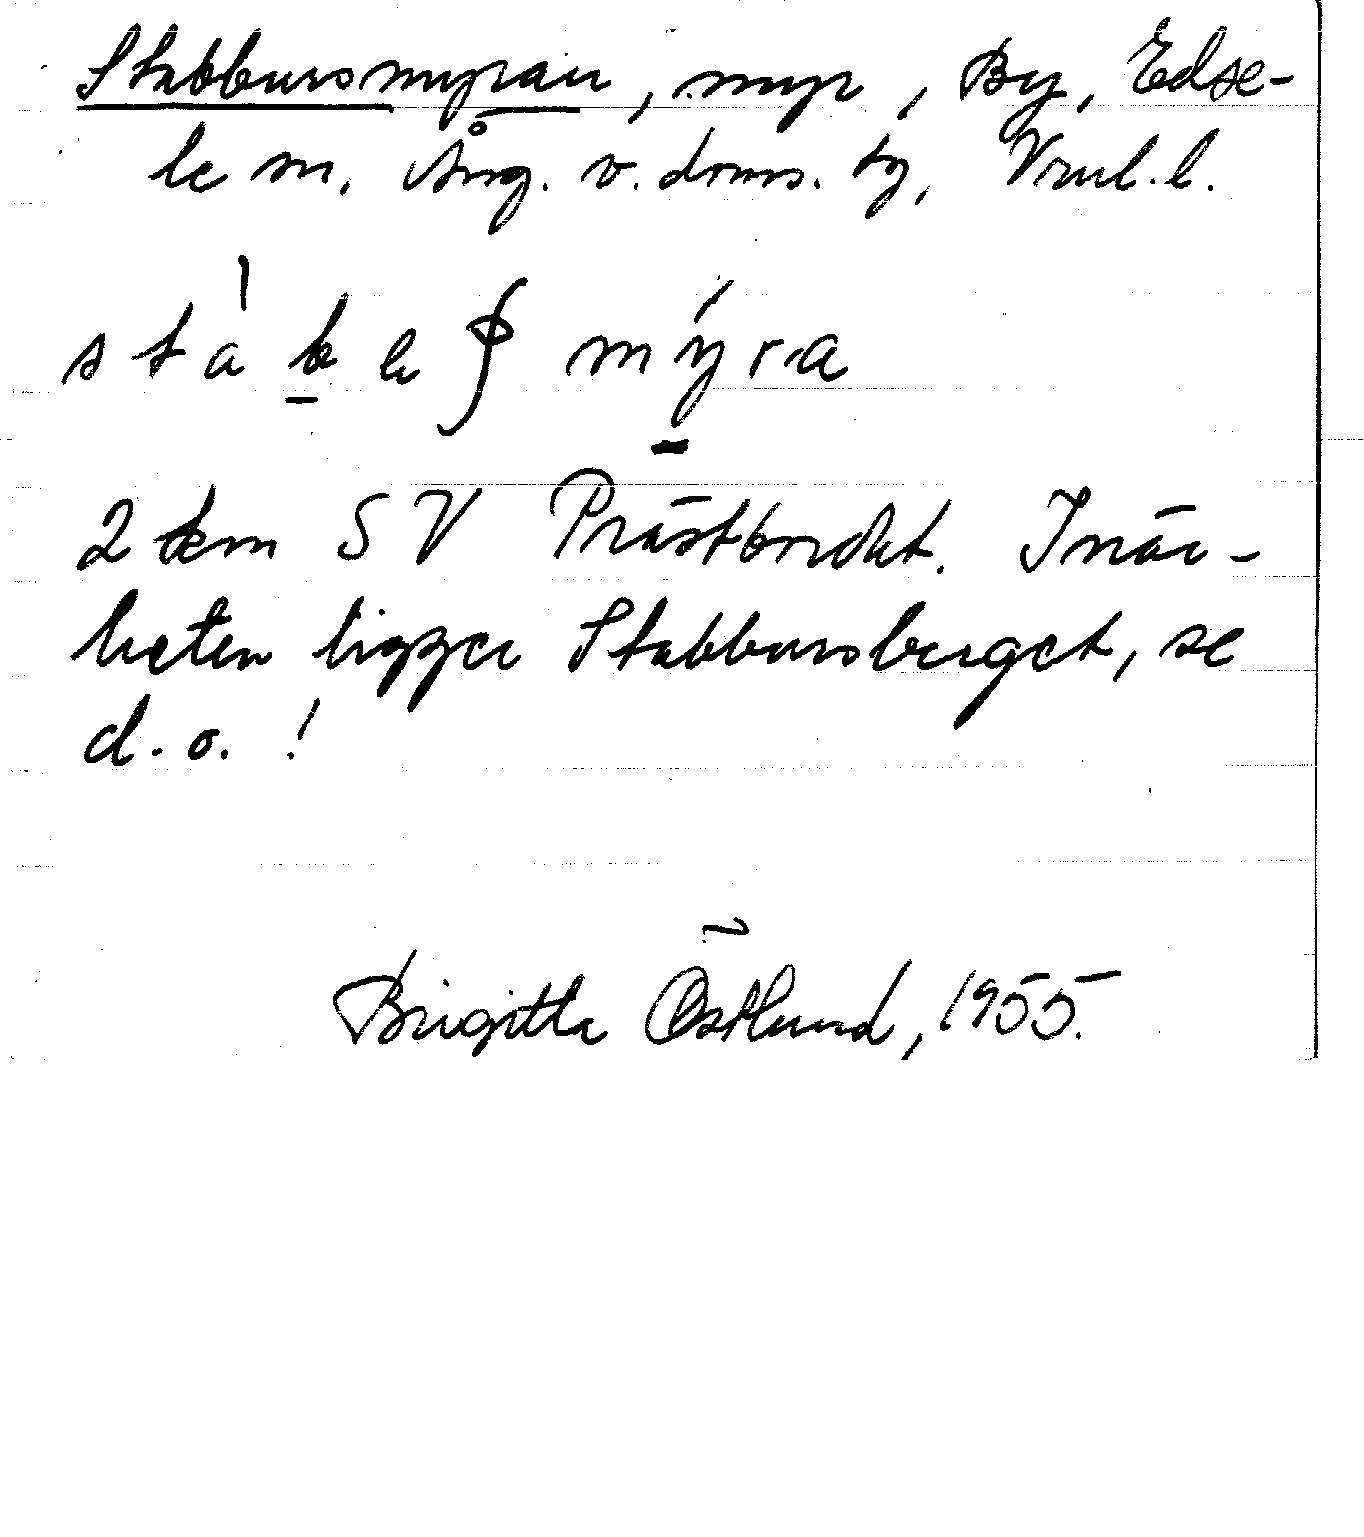 Stabbursmyran, myr, By, Edse-
le sn, Ång. v. doms. tg, Vnul.l.
myra
2 km SV Prästbordet. I när-
heten ligger Stabbursberget, se
d. o.!
Birgitta Östlund, 1955.